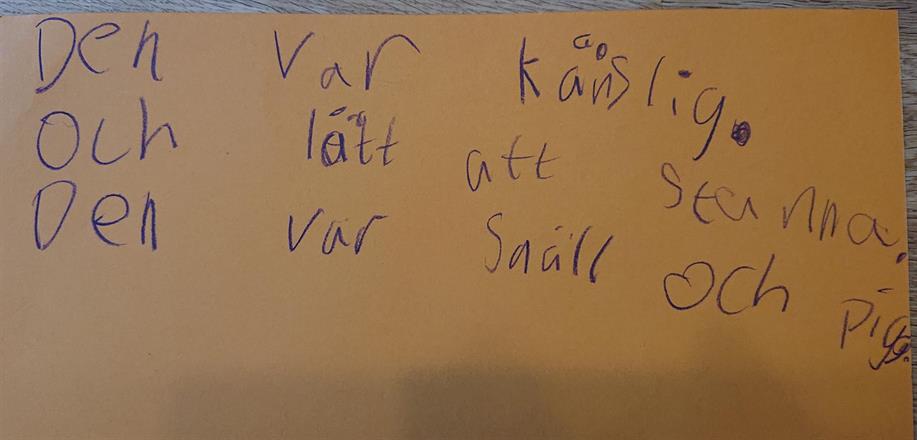 Den var känslig.
Och lätt att stanna.
Den var snäll och pigg.